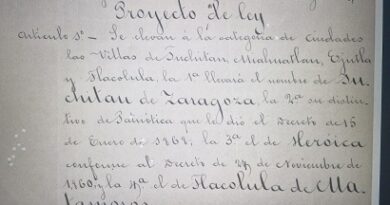 Proyecto de ley
Artículo 1º.- Se elevan á la categoría de Ciudades
las Villas de Juchitan, Miahuatlan, Ejutla
y Tlacolula, la 1ª llevará el nombre de Ju-
chitan de Zaragoza, la 2ª su distin-
tivo de que le dió el Decreto de 15
de Enero de 1861, la 3ª el de Heróica
conforme al Decreto de de Noviembre de
1860, y la 4ª el de Tlacolula de Ma-
tamoros